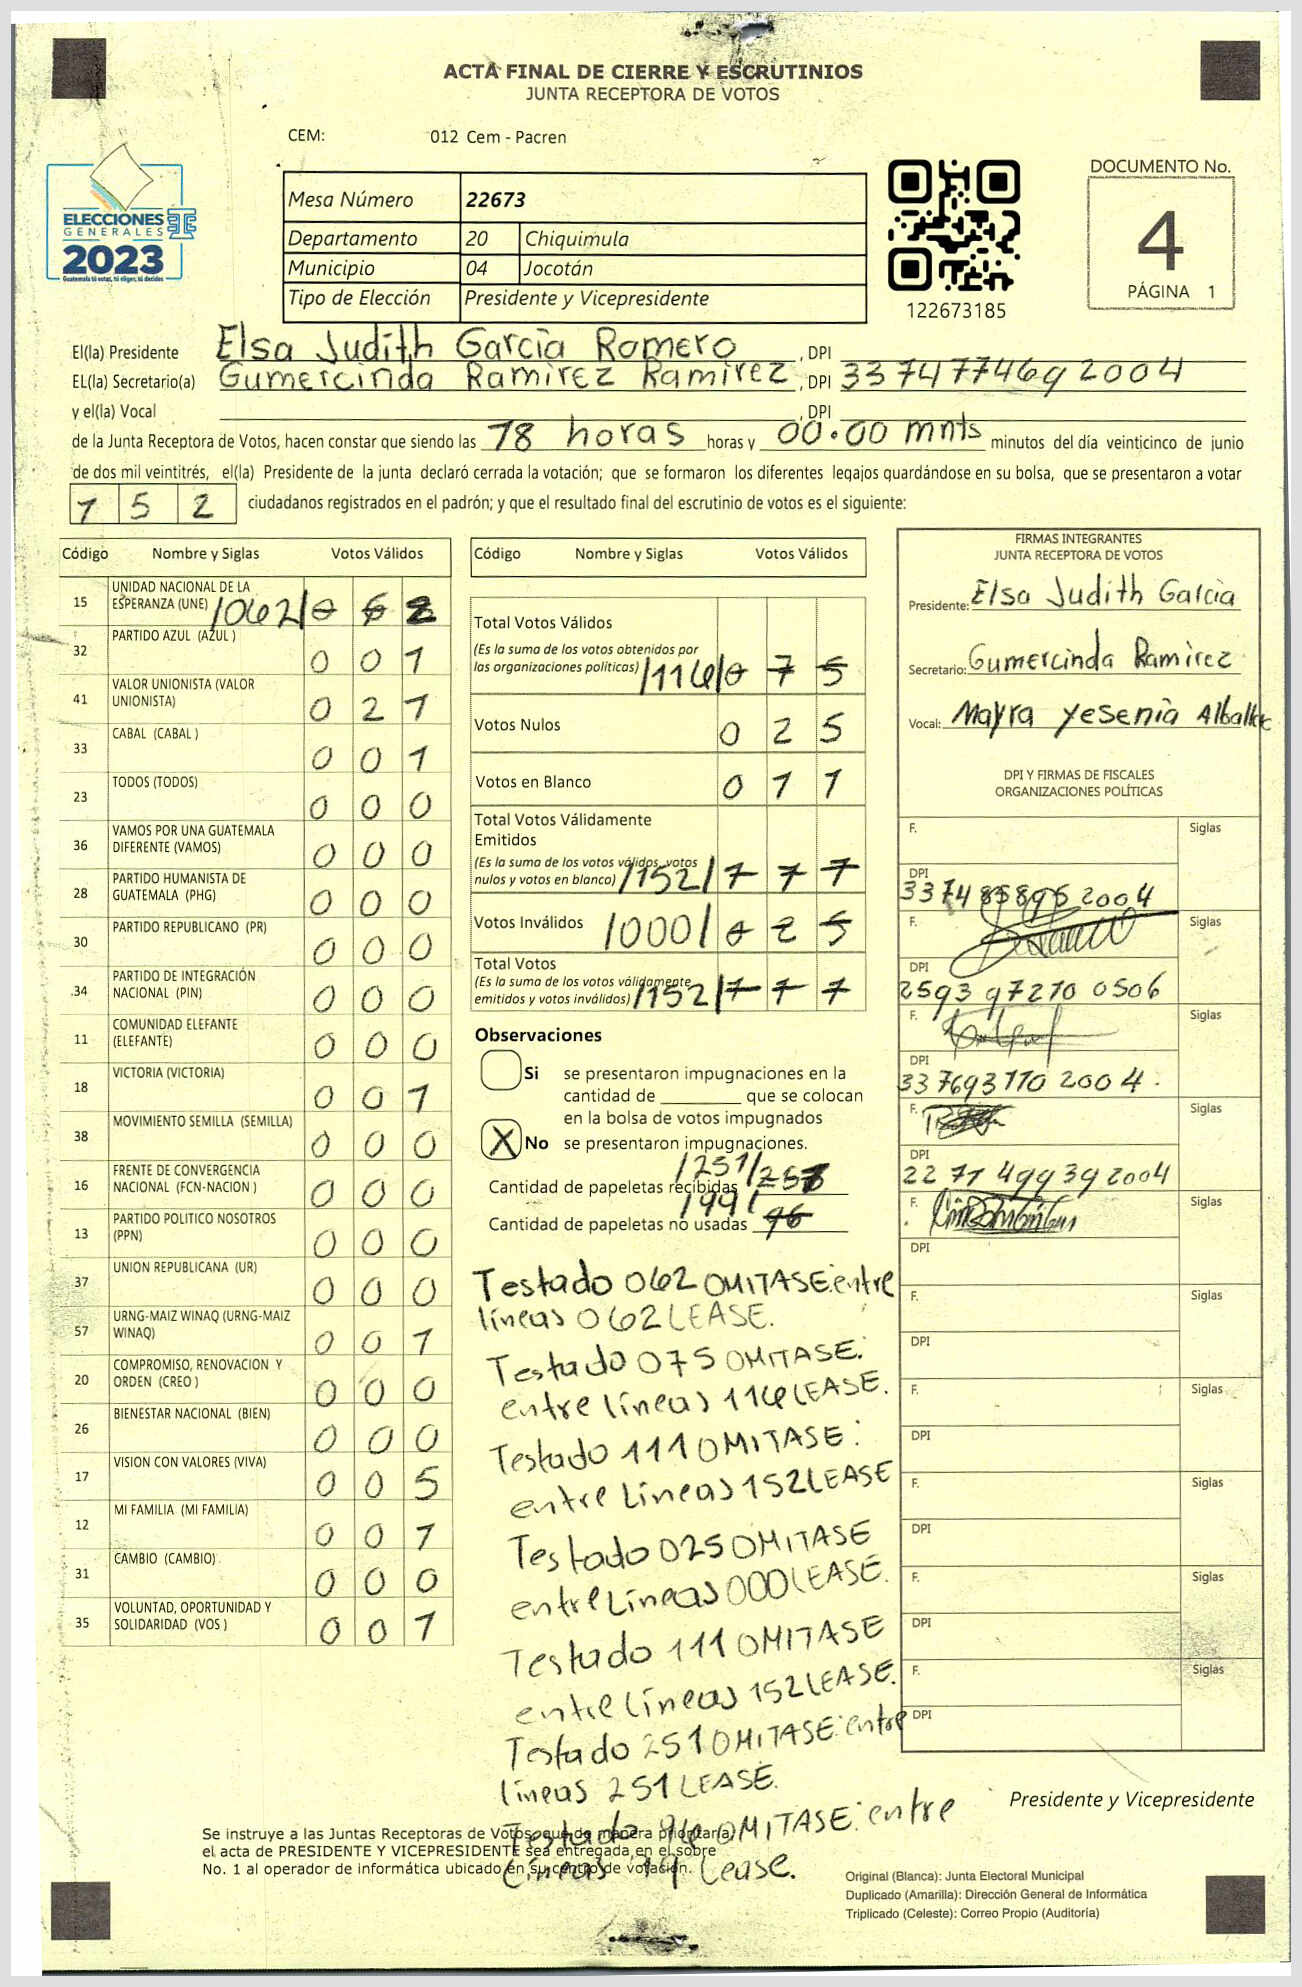 ACTA FINAL DE CIERRE Y ESCRUTINIOS
JUNTA RECEPTORA DE VOTOS
CEM: 012 Cem - Pacren
ELECCIONES
GENERALES
2023
Guatemala tú votas, tú eliges, tú decides
Mesa Número 22673
Departamento 20 Chiquimula
Municipio 04 Jocotán
Tipo de Elección Presidente y Vicepresidente
122673185
DOCUMENTO No.
4
PÁGINA 1
El(la) Presidente Elsa Judith Garcia Romero , DPI
EL(la) Secretario(a) Gumercinda Ramirez Ramirez , DPI 337477469 2004
y el(la) Vocal , DPI
de la Junta Receptora de Votos, hacen constar que siendo las 18 horas horas y 00.00 mnts minutos del día veinticinco de junio
de dos mil veintitrés, el(la) Presidente de la junta declaró cerrada la votación; que se formaron los diferentes legajos guardándose en su bolsa, que se presentaron a votar
1 5 2 ciudadanos registrados en el padrón; y que el resultado final del escrutinio de votos es el siguiente:
Código Nombre y Siglas Votos Válidos
15 UNIDAD NACIONAL DE LA
ESPERANZA (UNE) /062/ 0 6 2
32 PARTIDO AZUL (AZUL ) 0 0 1
41 VALOR UNIONISTA (VALOR
UNIONISTA) 0 2 1
33 CABAL (CABAL ) 0 0 1
23 TODOS (TODOS) 0 0 0
36 VAMOS POR UNA GUATEMALA
DIFERENTE (VAMOS) 0 0 0
28 PARTIDO HUMANISTA DE
GUATEMALA (PHG) 0 0 0
30 PARTIDO REPUBLICANO (PR) 0 0 0
34 PARTIDO DE INTEGRACIÓN
NACIONAL (PIN) 0 0 0
11 COMUNIDAD ELEFANTE
(ELEFANTE) 0 0 0
18 VICTORIA (VICTORIA) 0 0 1
38 MOVIMIENTO SEMILLA (SEMILLA) 0 0 0
16 FRENTE DE CONVERGENCIA
NACIONAL (FCN-NACION ) 0 0 0
13 PARTIDO POLITICO NOSOTROS
(PPN) 0 0 0
37 UNION REPUBLICANA (UR) 0 0 0
57 URNG-MAIZ WINAQ (URNG-MAIZ
WINAQ) 0 0 1
20 COMPROMISO, RENOVACION Y
ORDEN (CREO ) 0 0 0
26 BIENESTAR NACIONAL (BIEN) 0 0 0
17 VISION CON VALORES (VIVA) 0 0 5
12 MI FAMILIA (MI FAMILIA) 0 0 1
31 CAMBIO (CAMBIO) 0 0 0
35 VOLUNTAD, OPORTUNIDAD Y
SOLIDARIDAD (VOS ) 0 0 1
Código Nombre y Siglas Votos Válidos
Total Votos Válidos
(Es la suma de los votos obtenidos por
las organizaciones políticas) /116/ 0 7 5
Votos Nulos 0 2 5
Votos en Blanco 0 1 1
Total Votos Válidamente
Emitidos
(Es la suma de los votos válidos, votos
nulos y votos en blanco) /152/ 1 1 1
Votos Inválidos /000/ 0 2 5
Total Votos
(Es la suma de los votos válidamente
emitidos y votos inválidos) /152/ 1 1 1
Observaciones
Si se presentaron impugnaciones en la
cantidad de ________ que se colocan
en la bolsa de votos impugnados
X No se presentaron impugnaciones.
Cantidad de papeletas recibidas /251/ 251
Cantidad de papeletas no usadas /99/ 96
Testado 062 OMITASE: entre
líneas 062 LEASE.
Testado 075 OMITASE:
entre líneas 116 LEASE.
Testado 111 OMITASE:
entre Líneas 152 LEASE
Testado 025 OMITASE
entre Líneas 000 LEASE.
Testado 111 OMITASE
entre Líneas 152 LEASE.
Testado 251 OMITASE: entre
líneas 251 LEASE.
Testado 96 OMITASE: entre
Líneas Lease.
FIRMAS INTEGRANTES
JUNTA RECEPTORA DE VOTOS
Presidente: Elsa Judith Garcia
Secretario: Gumercinda Ramirez
Vocal: Mayra Yesenia
DPI Y FIRMAS DE FISCALES
ORGANIZACIONES POLÍTICAS
F. Siglas
DPI
337485895 2004
F. Siglas
DPI
2593 97270 0506
F. Siglas
DPI
337693110 2004.
F. Siglas
DPI
2271 49939 2004
F. Siglas
DPI
F. Siglas
DPI
F. Siglas
DPI
F. Siglas
DPI
F. Siglas
DPI
F. Siglas
DPI
Presidente y Vicepresidente
Se instruye a las Juntas Receptoras de Votos que de manera prioritaria,
el acta de PRESIDENTE Y VICEPRESIDENTE sea entregada en el sobre
No. 1 al operador de informática ubicado en su centro de votación.
Original (Blanca): Junta Electoral Municipal
Duplicado (Amarilla): Dirección General de Informática
Triplicado (Celeste): Correo Propio (Auditoría)